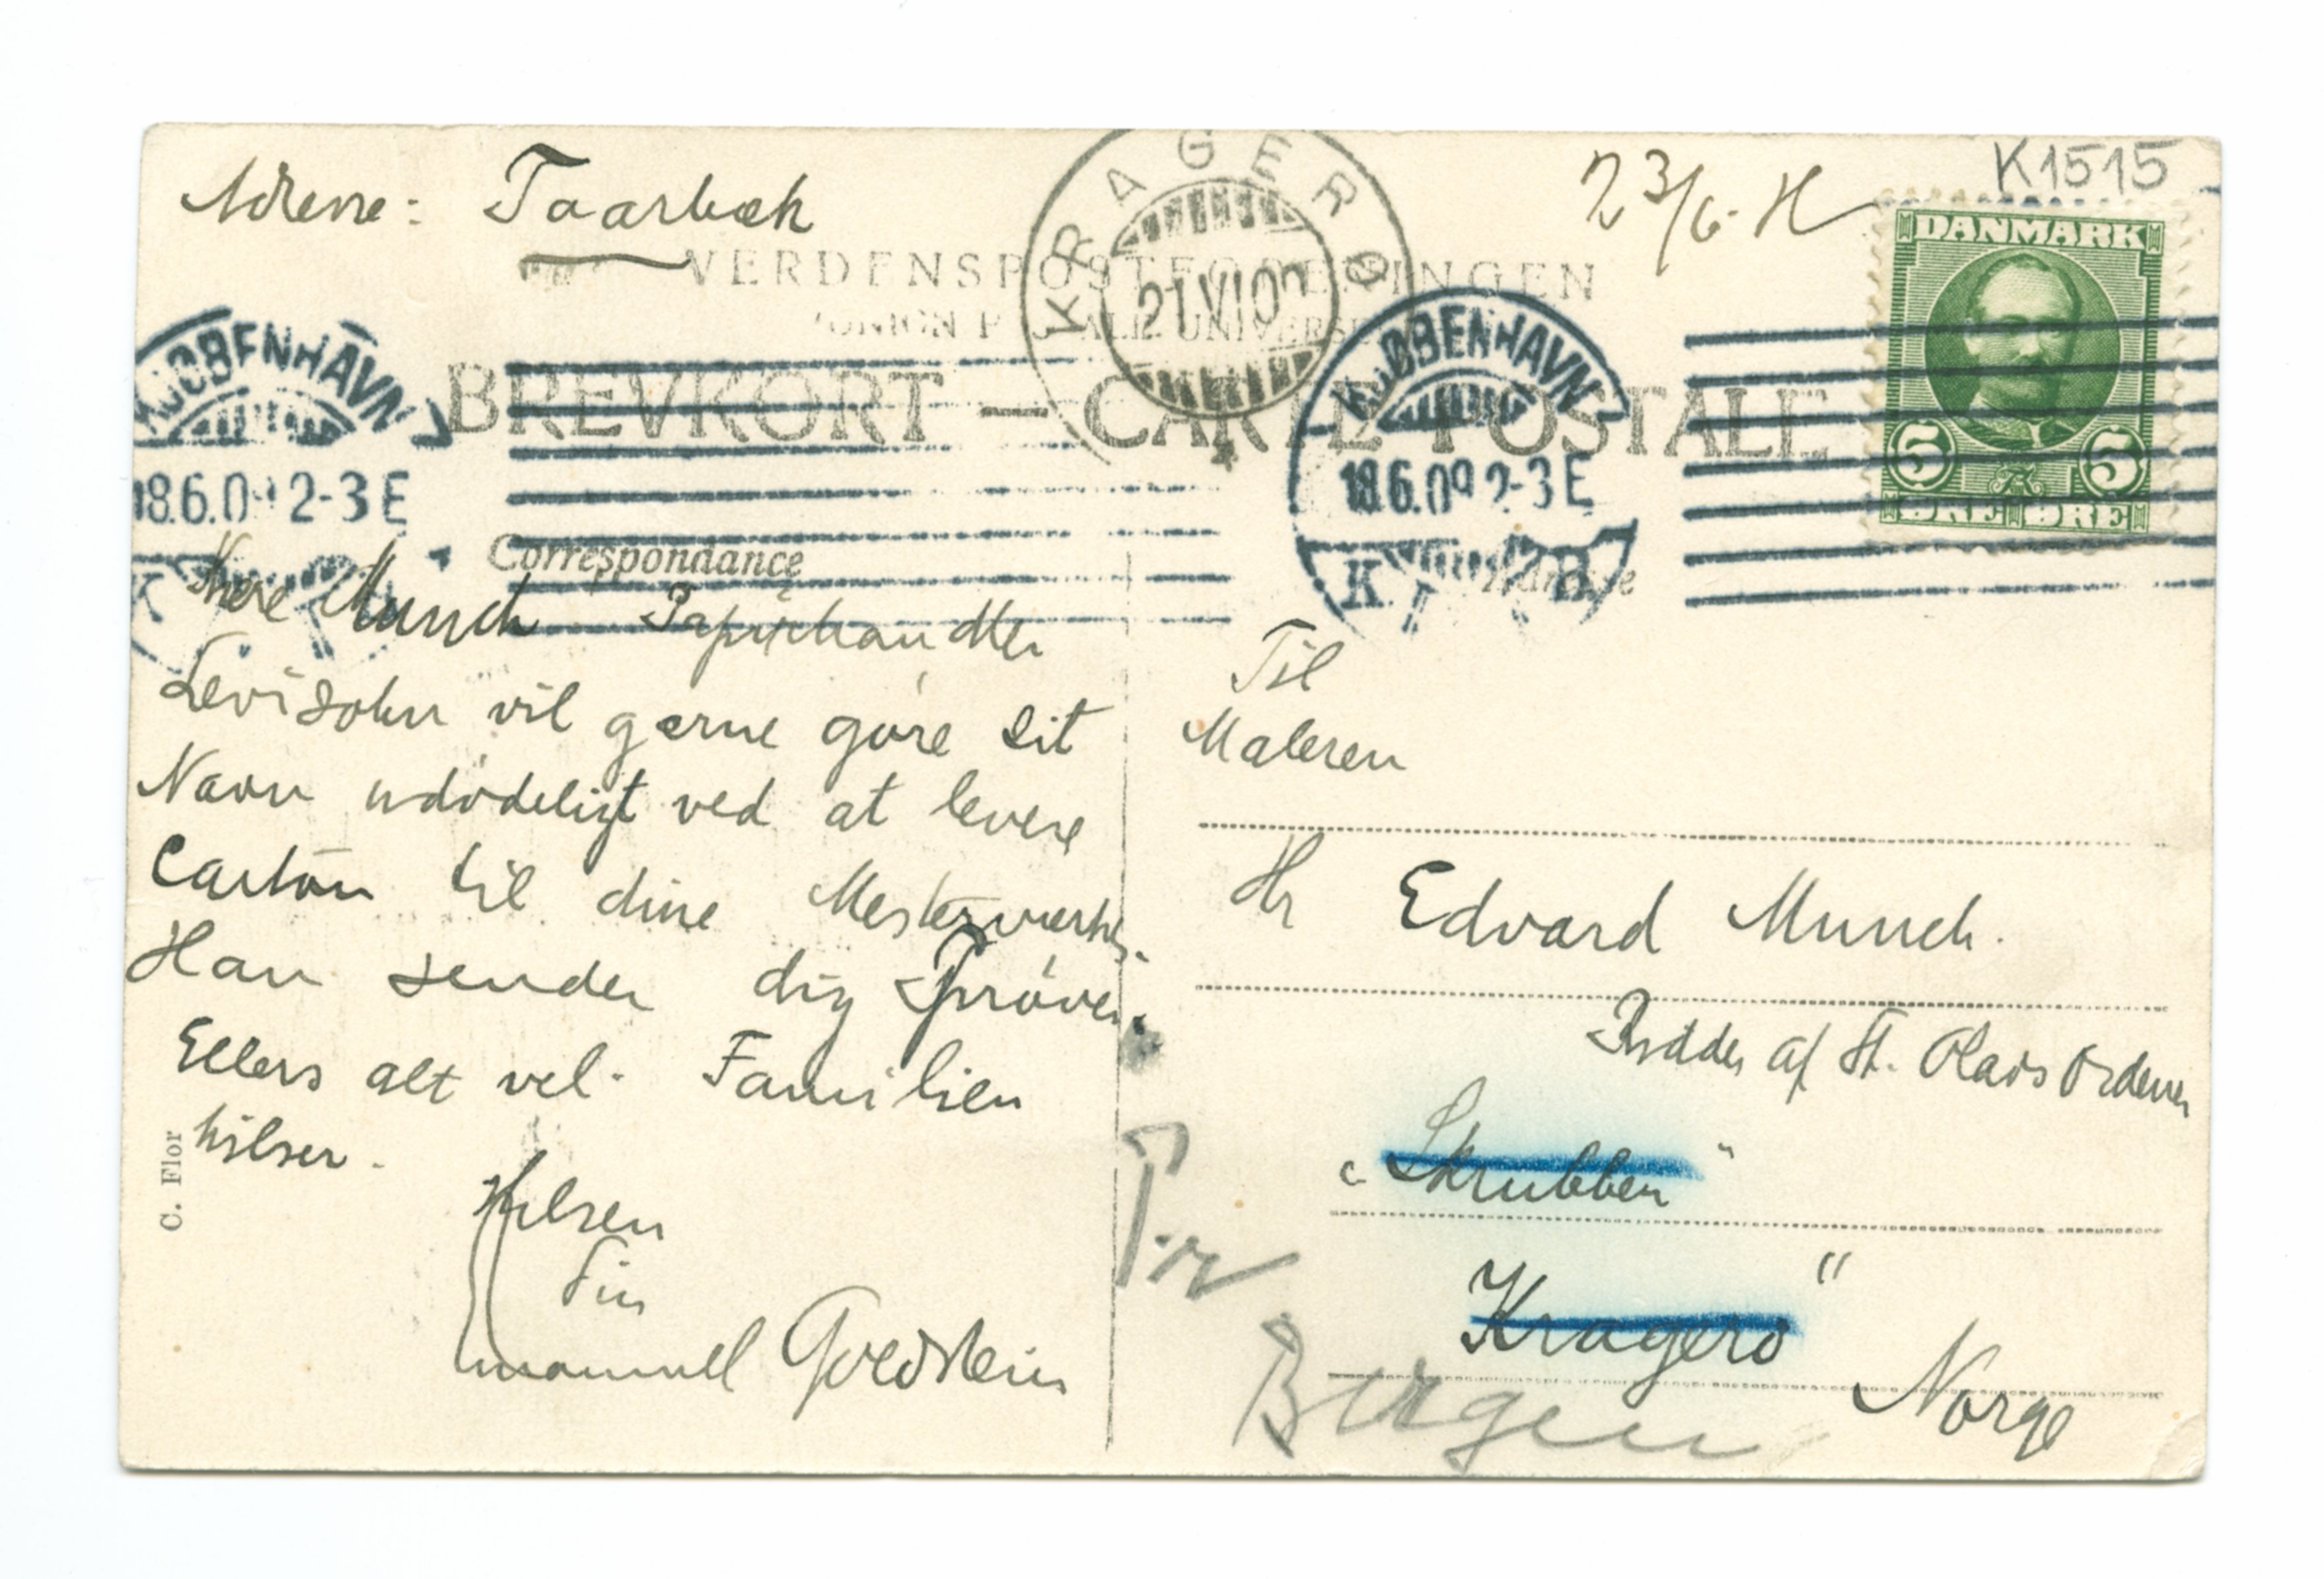 Adresse: Taarbæk
23/6. H
K1515
VERDENSPOSTFORENINGEN
UNION POSTALE UNIVERSELLE
BREVKORT — CARTE POSTALE
KRAGERØ
21 VI 09
KJØBENHAVN
18.6.09 2-3 E
K
KJØBENHAVN
18.6.09 2-3 E
K B
DANMARK
5 5
ØRE ØRE
Correspondance
Adresse
Kære Munch Papirhandler
Levisohn vil gerne gøre sit
Navn udødeligt ved at levere
Carton til dine Mesterværker.
Han sender dig Prøver.
Ellers alt vel. Familien
hilser.
Hilsen
din
Emanuel Goldstein
C. Flor
Til
Maleren
Hr Edvard Munch.
Ridder af St. Olavs Ordenen
„Skrubben"
Kragerø"
Norge
Bergen